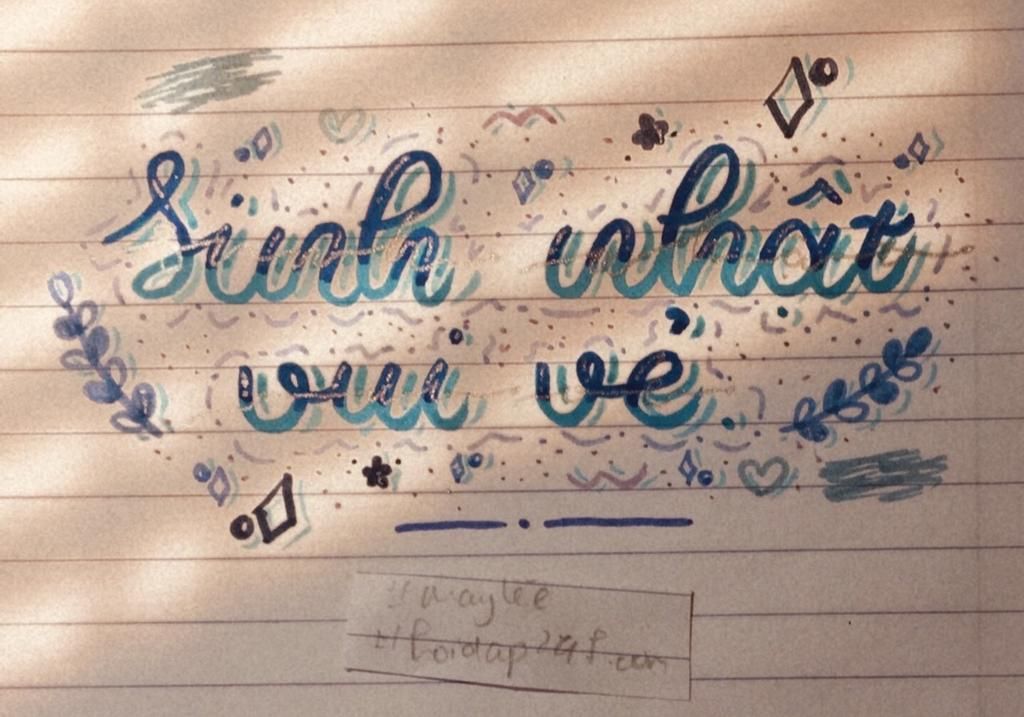 Sinh nhật
vui vẻ.
# maylee
# hoidap247.com